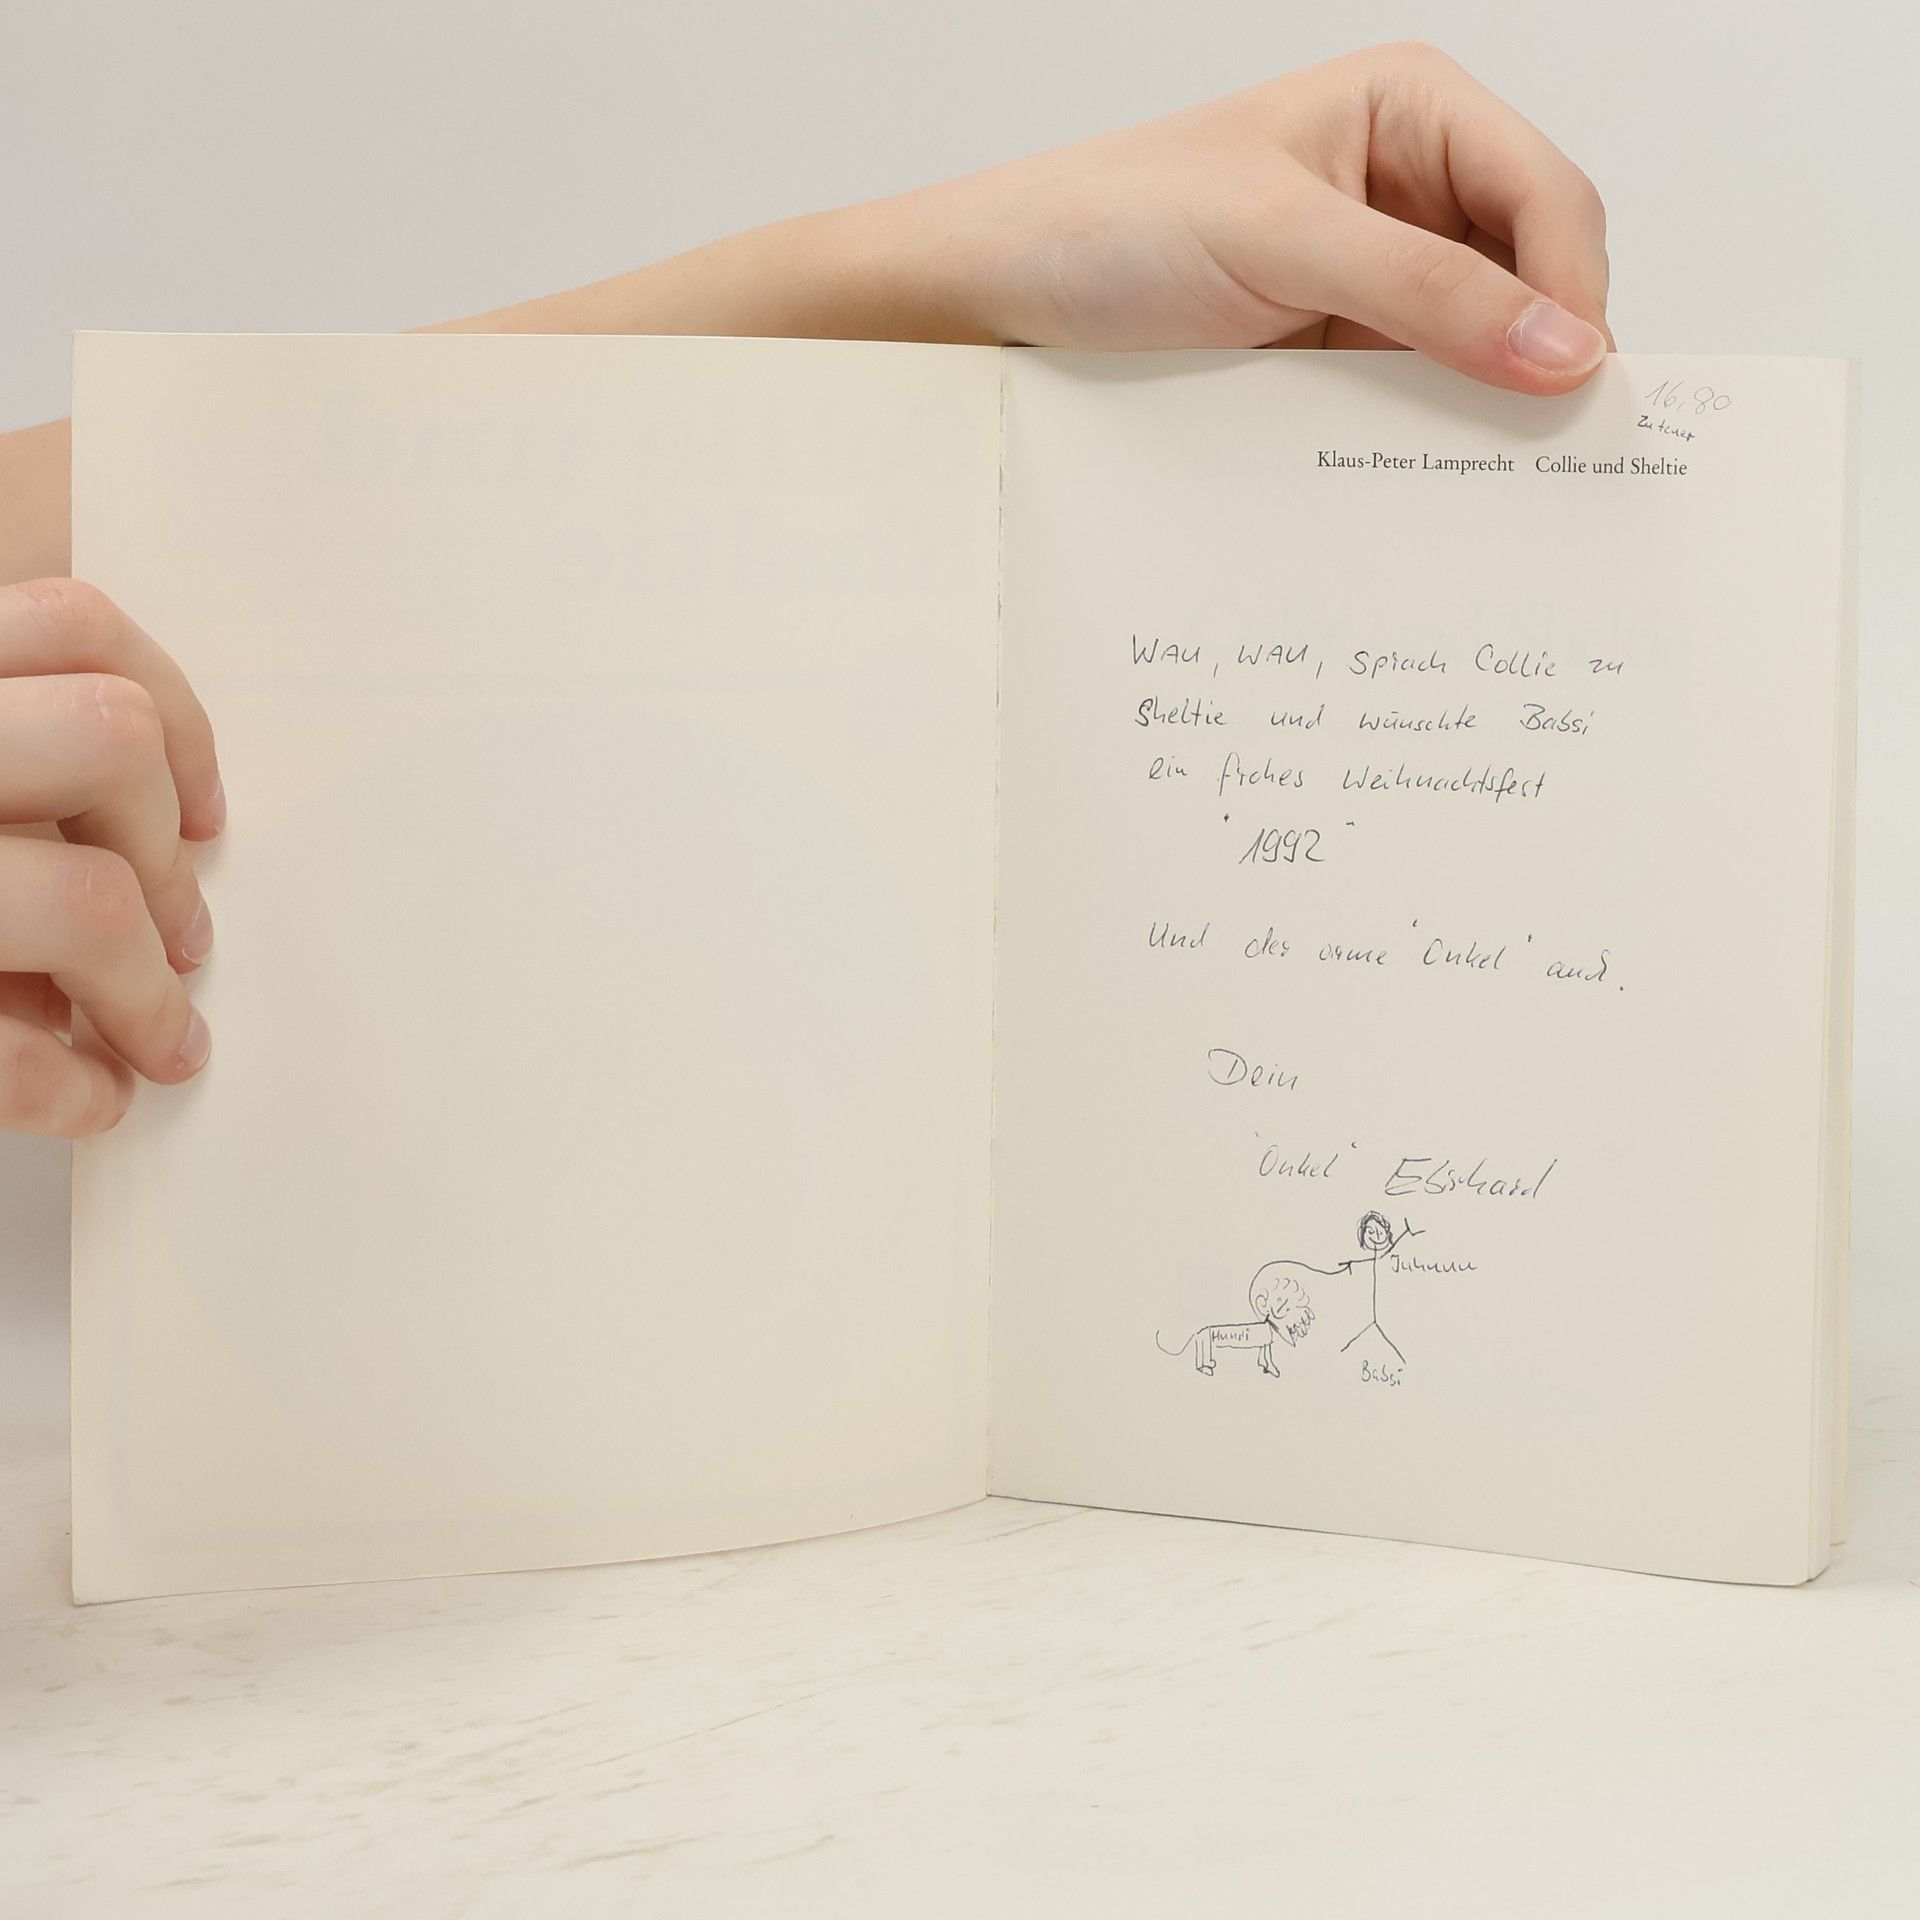 16,80
zu teuer
Klaus-Peter Lamprecht Collie und Sheltie
WAU, WAU, sprach Collie zu
Sheltie und wünschte Babsi
ein frohes Weihnachtsfest
"1992"
Und der arme "Onkel" auch.
Dein
"Onkel" Eberhard
Juhuuu
Hundi
Babsi